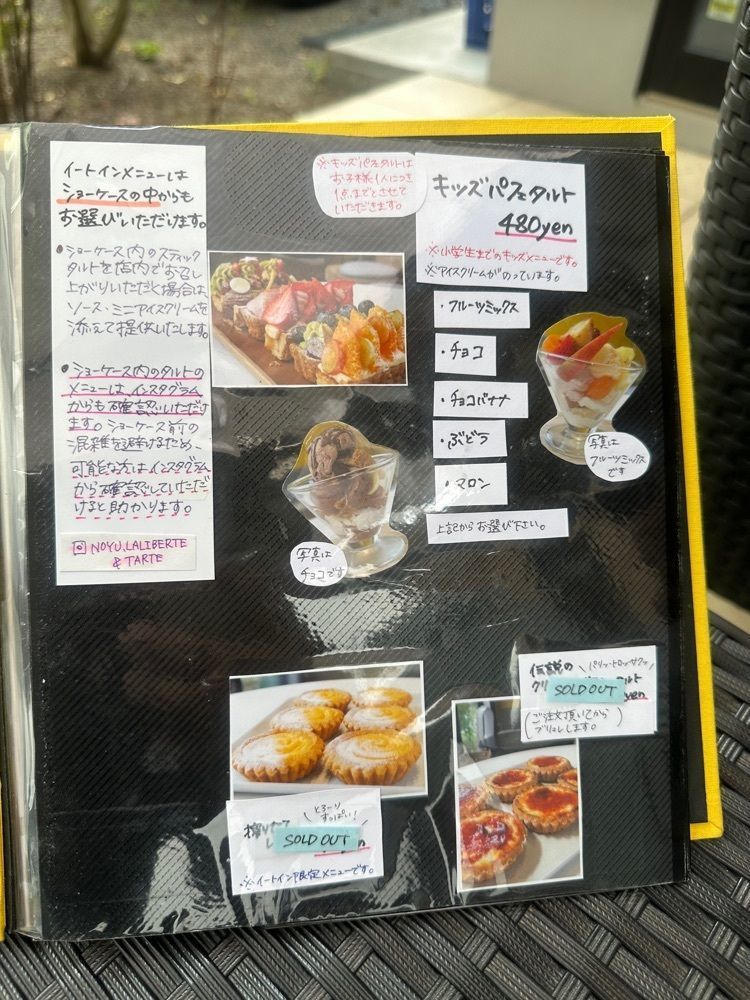 イートインメニューは
ショーケースの中からも
お選びいただけます。
●ショーケース内のスティック
タルトを店内でお召し
上がりいただく場合は
ソース・ミニアイスクリームを
添えて提供いたします。
●ショーケース内のタルトの
メニューは、インスタグラム
からも確認いただけ
ます。ショーケース前の
混雑を避けるため、
可能な方はインスタグラム
から確認していただ
けると助かります。
NOYU.LALIBERTE
& TARTE
※キッズパフェタルトは
お子様1人につき
1点までとさせて
いただきます。
キッズパフェタルト
480yen
※小学生までのキッズメニューです。
※アイスクリームがのっています。
・フルーツミックス
・チョコ
・チョコバナナ
・ぶどう
・マロン
上記からお選び下さい。
写真は
フルーツミックス
です
写真は
チョコです
伝説の
パリッ・トロッ・サクッ
クリ
タルト
SOLD OUT
yen
(ご注文頂いてから
ブリュレします。)
とろーり
すっぱい!
搾りたて
SOLD OUT
yen
※イートイン限定メニューです。